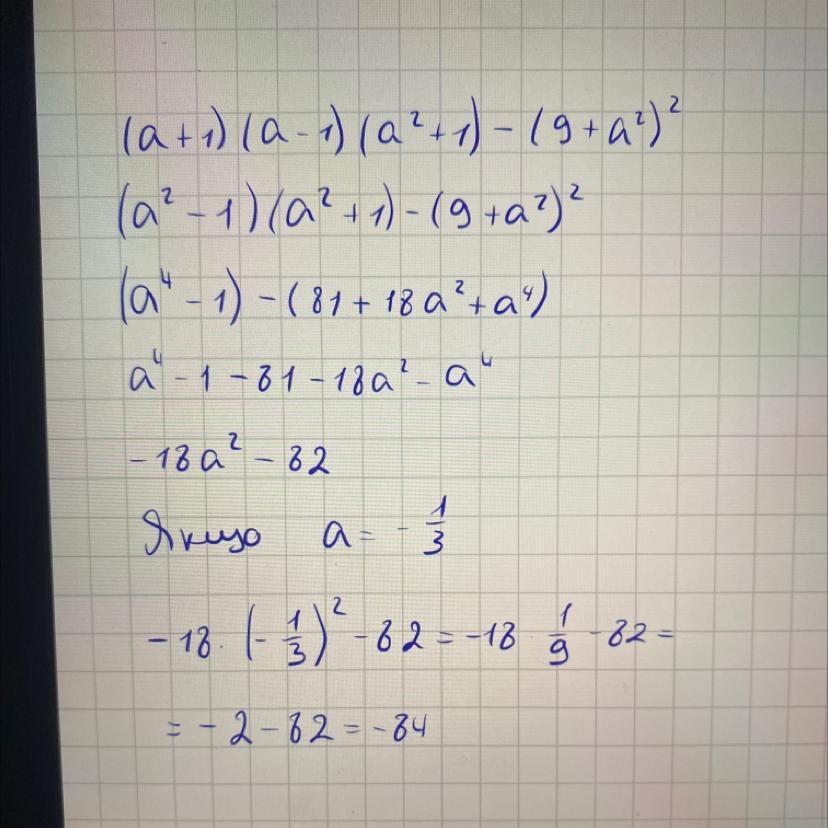 (a+1)(a-1)(a²+1)-(9+a²)²
(a²-1)(a²+1)-(9+a²)²
(a⁴-1)-(81+18a²+a⁴)
a⁴-1-81-18a²-a⁴
-18a²-82
Якщо a=-1/3
-18·(-1/3)²-82=-18·1/9-82=
=-2-82=-84